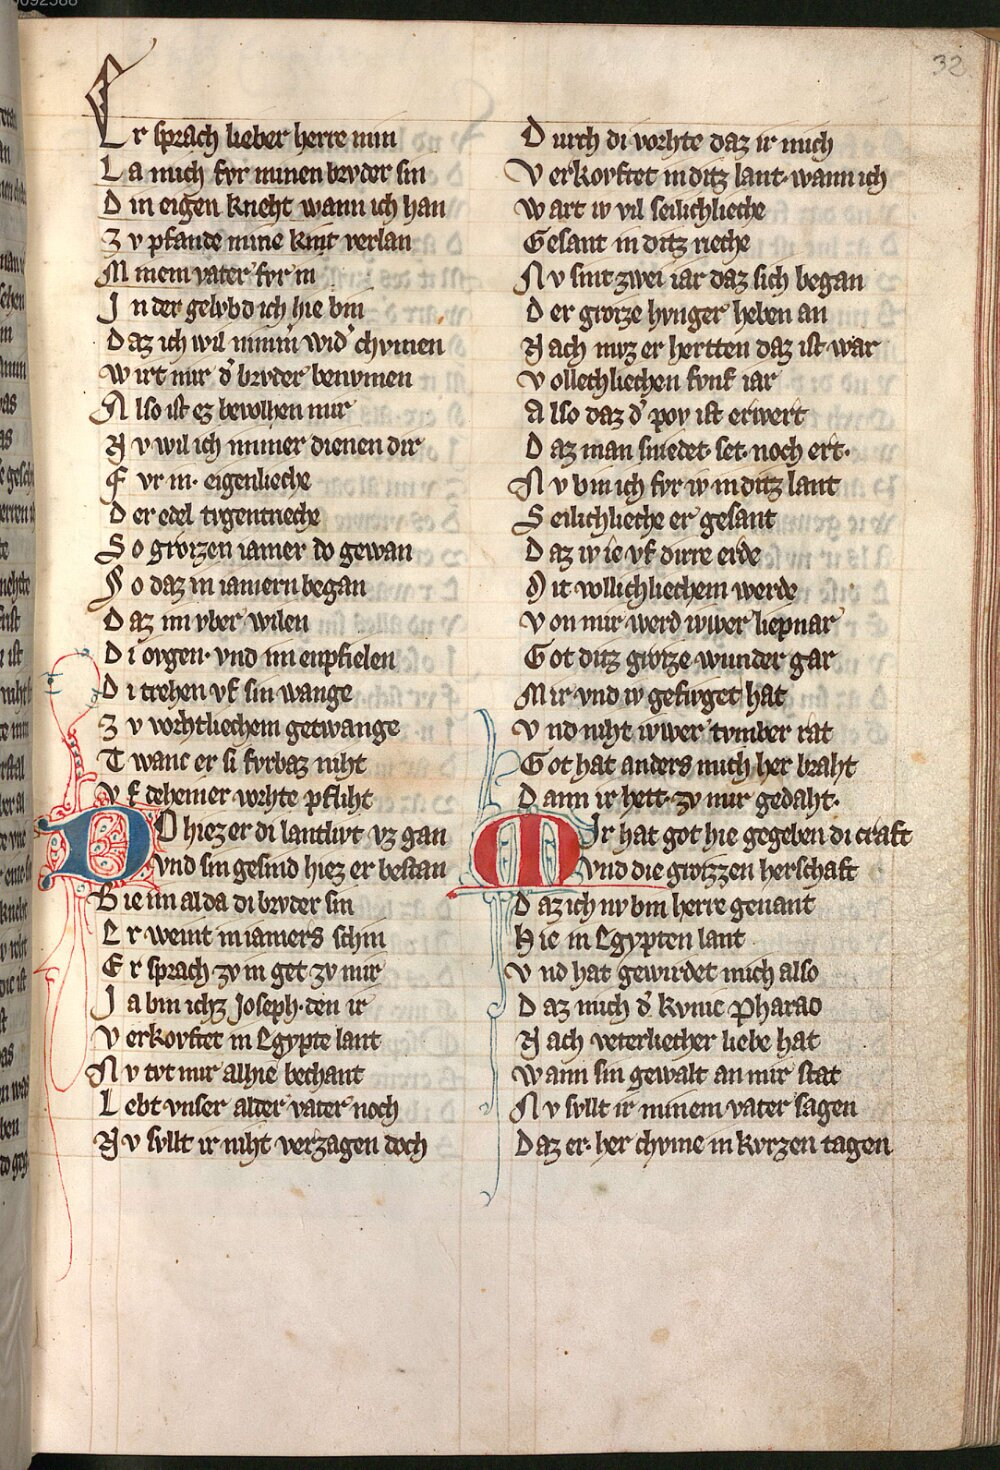 32
Er sprach lieber herre min
La mich fvr minen brvder sin
Din eigen kneht wann ich han
Zv pfande mine kint verlan
Minem vater fvr in
In der gelvbd ich hie bin
Daz ich wil nimm̉ wid̉ chvmen
Wirt mir d̉ brvder benvmen
Also ist ez bevolhen mir
Nv wil ich immer dienen dir
Fvr in· eigenlieche
Der edel tvgentrieche
So grozzen iamer do gewan
So daz in iamern began
Daz im vber wilen
Di ovgen· vnd im enpfielen
Di trehen vf sin wange
Zv vorhtliechem getwange
Twanc er si fvrbaz niht
Vf deheiner vorhte pfliht
Do hiez er di lantlivt vz gan
vnd sin gesind hiez er bestan
Bi im al da di brvder sin
Er weint in iamers schin
Er sprach zv in get zv mir
Ja bin ichz Joseph· den ir
Verkovftet in Egypte lant
Nv tvt mir alhie bechant
Lebt vnser alder vater noch
Nv svllt ir niht verzagen doch
Dvrch di vorhte daz ir mich
Verkovftet in ditz lant· wann ich
Wart iv vil seilichlieche
Gesant in ditz rieche
Nv sint zwei iar daz sich began
Der grozze hvnger heben an
Nach mvz er hertten daz ist war
Vollechliechen fvnf iar
Also daz d̉ pov ist erwert
Daz man sniedet· set· noch ert·
Nv bin ich fvr iv in ditz lant
Seilichlieche er gesant
Daz iv ie vf dirre erde
Mit vollichliechem werde
Von mir werd iwer liepnar
Got ditz grozze wunder gar
Mir vnd iv gefvget hat
Vnd niht iwer tvmber rat
Got hat anders mich her braht
Dann ir hett· zv mir gedaht·
Mir hat got hie gegeben di craft
vnd die grozzen herschaft
Daz ich nv bin herre genant
Hie in Egypten lant
Vnd hat gewirdet mich also
Daz mich d̉ kvnic Pharao
Nach veterliecher liebe hat
Wann sin gewalt an mir stat
Nv svllt ir minem vater sagen
Daz er· her chvme in kvrzen tagen